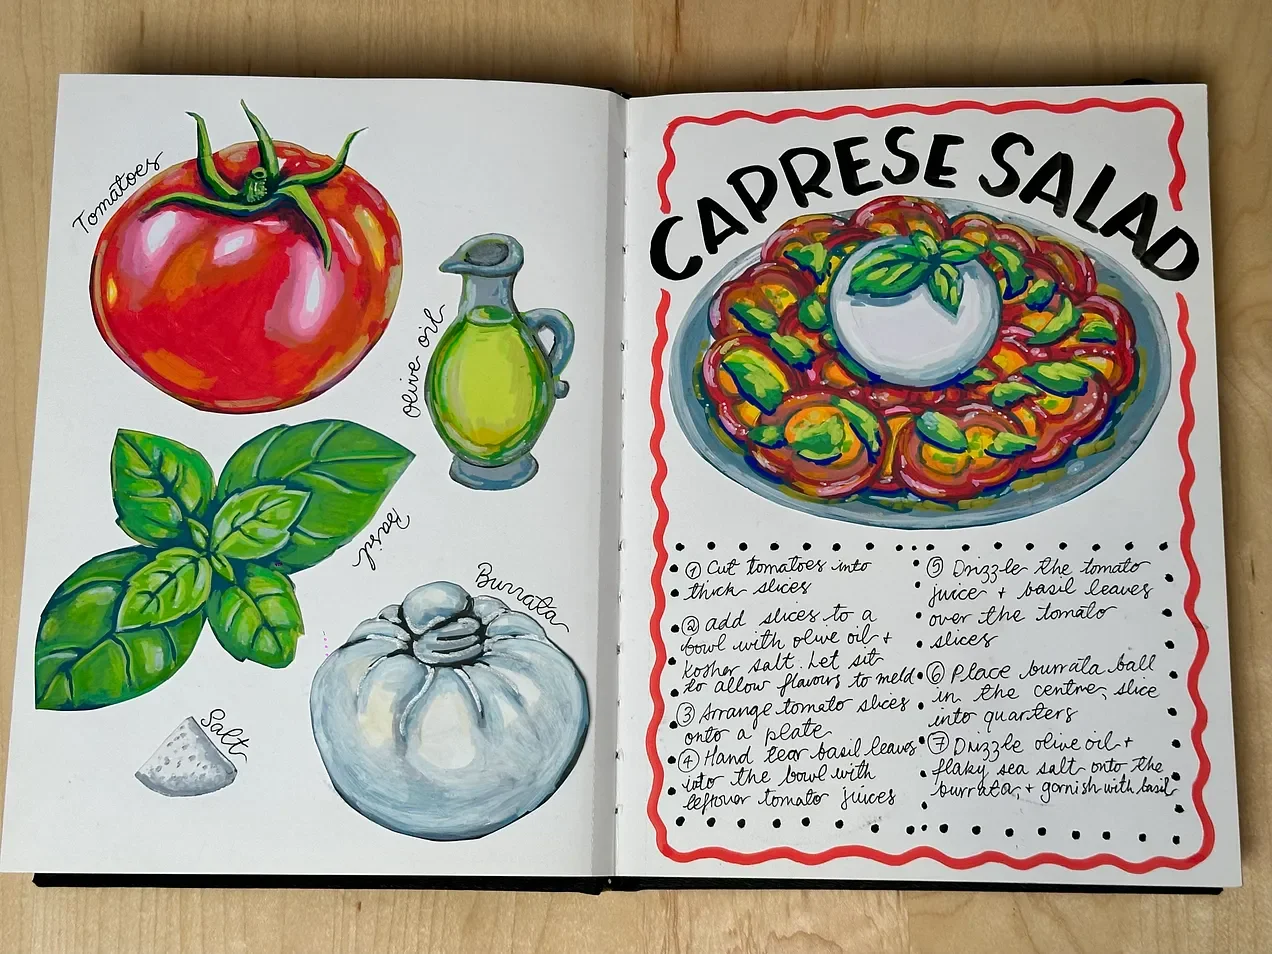 Tomatoes
olive oil
Basil
Burrata
Salt
CAPRESE SALAD
① Cut tomatoes into
thick slices
② add slices to a
bowl with olive oil +
kosher salt. Let sit
to allow flavours to meld
③ Arrange tomato slices
onto a plate
④ Hand tear basil leaves
into the bowl with
leftover tomato juices
⑤ Drizzle the tomato
juice + basil leaves
over the tomato
slices
⑥ Place burrata ball
in the centre, slice
into quarters
⑦ Drizzle olive oil +
flaky sea salt onto the
burrata, + garnish with basil